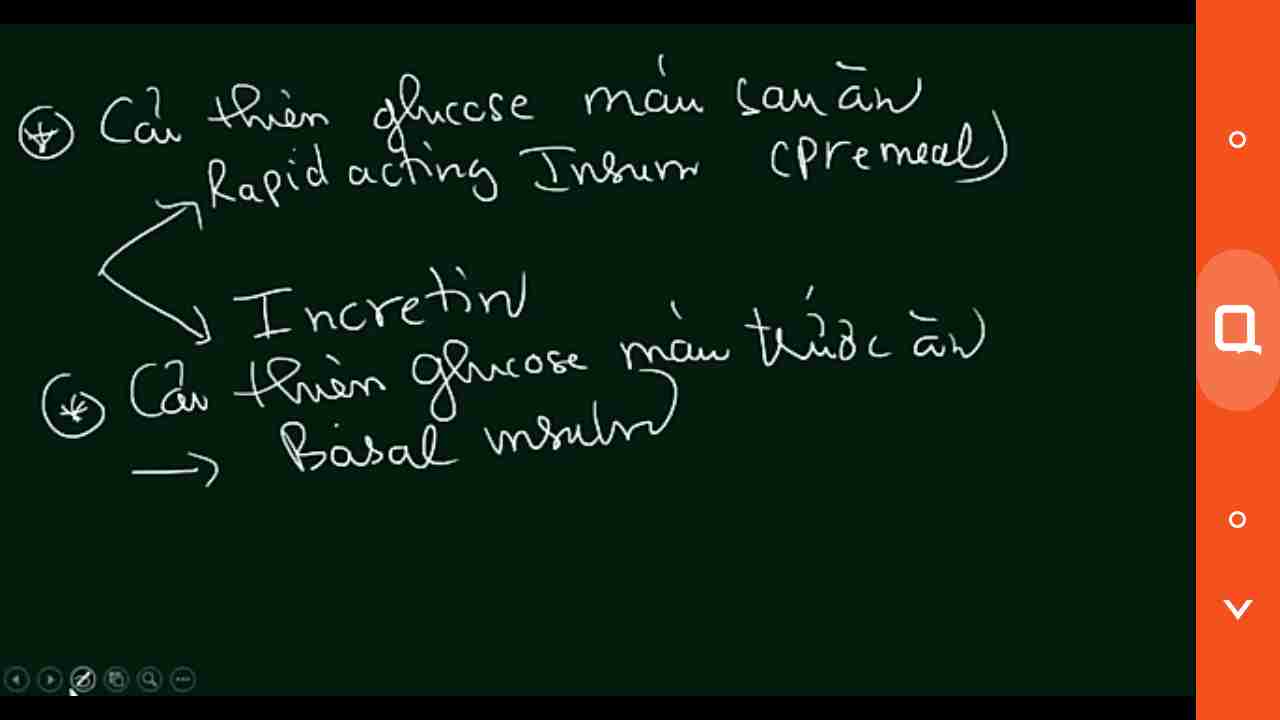 Cải thiện glucose máu sau ăn
Rapid acting Insulin (premeal)
Incretin
Cải thiện glucose máu trước ăn
→ Basal insulin